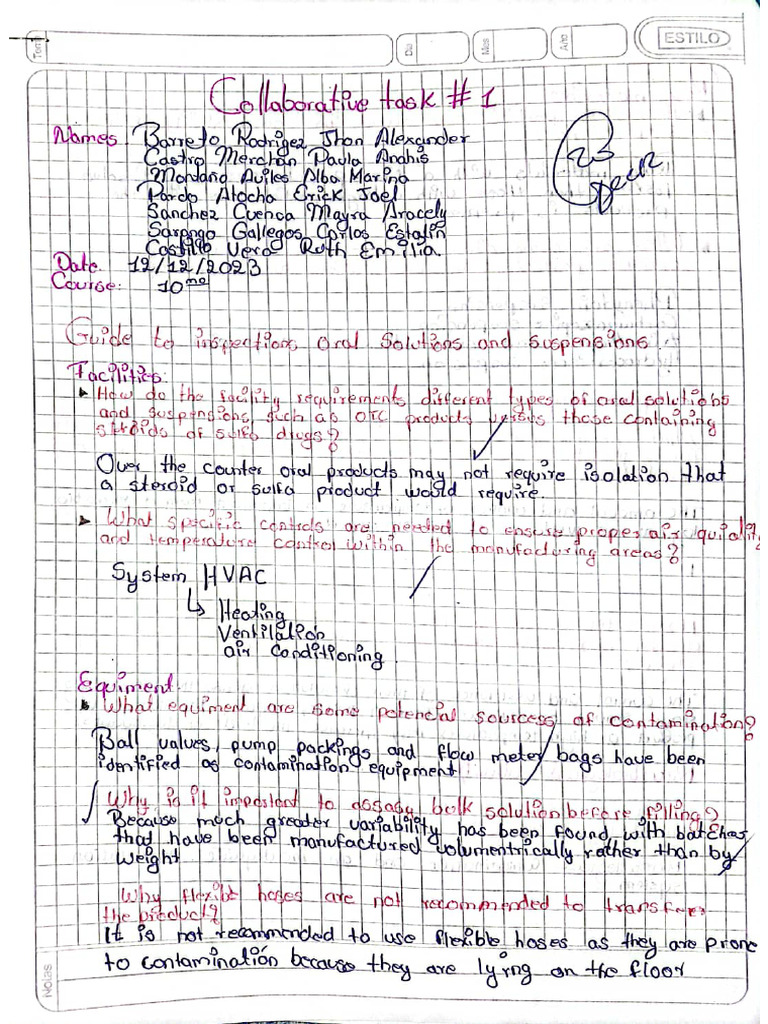 Tema
Dia
Mes
Año
ESTILO
Collaborative task # 1
23
Names Barreto Rodrigez Jhon Alexander
Castro Merchan Paula Anahis
Montaño Aviles Alba Marina
Pardo Atocha Erick Joel
Sanchez Cuenca Mayra Aracely
Sarango Gallegos Carlos Estalin
Castillo Vera Ruth Emilia.
Date. 12/12/2023
Course: 10 mo
Guide to inspections oral Solutions and suspensions
Facilities:
How do the facility requirements different types of oral solutions
and suspensions, such as OTC products versus those containing
steroids of sulfa drugs?
Over the counter oral products may not require isolation that
a steroid or sulfa product would require.
What specific controls are needed to ensure proper air quality
and temperature control within the manufacturing areas?
System HVAC
↳ Heating
Ventilation
air conditioning.
Equiment.
What equiment are some potencial sourcess of contamination?
Ball values, pump packings and flow meter bags have been
identified as contamination equipment.
Why is it important to assay bulk solution before filling?
Because much greater variability has been found with batches
that have been manufactured volumentrically rather than by
weight
Why flexibl hoses are not recommended to transfer
the product?
It is not recommended to use flexible hoses as they are prone
to contamination because they are lyrng on the floor
Notas